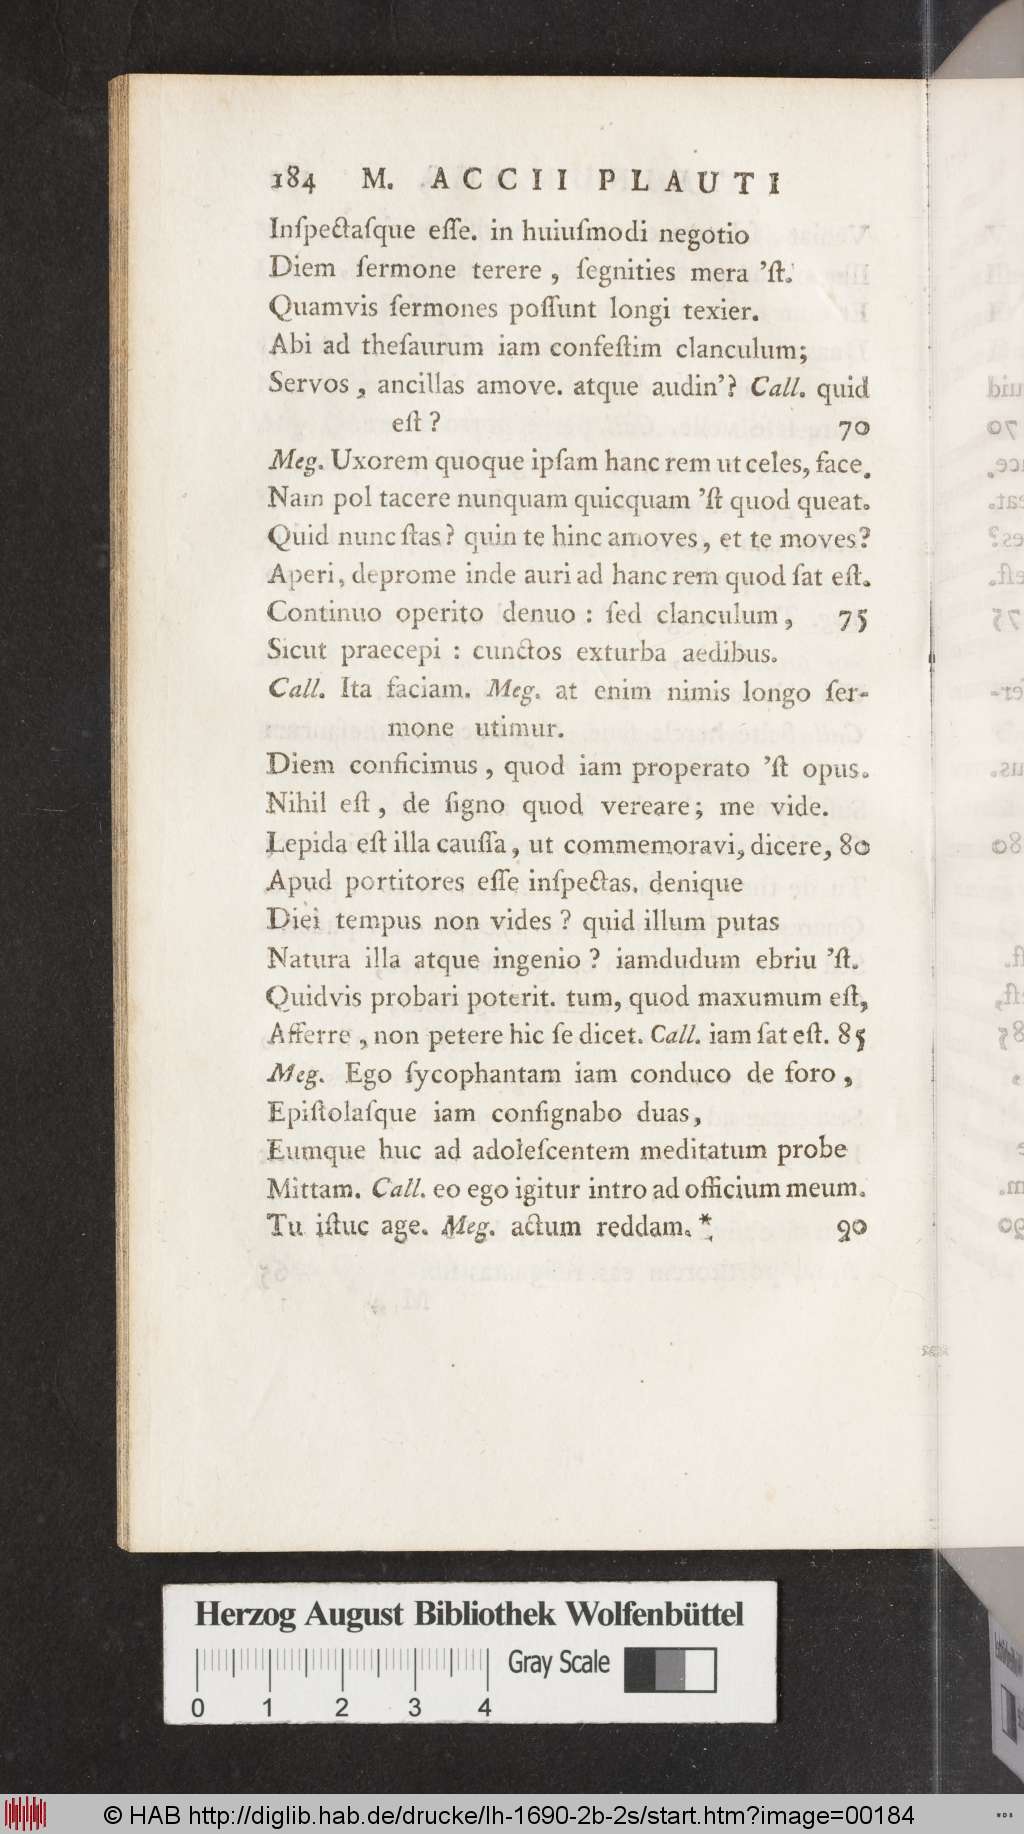 184 M. ACCII PLAUTI
Inſpectaſque eſſe. in huiuſmodi negotio
Diem ſermone terere, ſegnities mera 'ſt.
Quamvis ſermones poſſunt longi texier.
Abi ad theſaurum iam confeſtim clanculum;
Servos, ancillas amove. atque audin'? Call. quid
eſt? 70
Meg. Uxorem quoque ipſam hanc rem ut celes, face.
Nam pol tacere nunquam quicquam 'ſt quod queat.
Quid nunc ſtas? quin te hinc amoves, et te moves?
Aperi, deprome inde auri ad hanc rem quod ſat eſt.
Continuo operito denuo: ſed clanculum, 75
Sicut praecepi: cunctos exturba aedibus.
Call. Ita faciam. Meg. at enim nimis longo ſer-
mone utimur.
Diem conficimus, quod iam properato 'ſt opus.
Nihil eſt, de ſigno quod vereare; me vide.
Lepida eſt illa cauſſa, ut commemoravi, dicere, 80
Apud portitores eſſe inſpectas. denique
Diei tempus non vides? quid illum putas
Natura illa atque ingenio? iamdudum ebriu 'ſt.
Quidvis probari poterit. tum, quod maxumum eſt,
Afferre, non petere hic ſe dicet. Call. iam ſat eſt. 85
Meg. Ego ſycophantam iam conduco de foro,
Epiſtolaſque iam conſignabo duas,
Eumque huc ad adoleſcentem meditatum probe
Mittam. Call. eo ego igitur intro ad officium meum.
Tu iſtuc age. Meg. actum reddam. * 90
Herzog August Bibliothek Wolfenbüttel
Gray Scale
0 1 2 3 4
© HAB http://diglib.hab.de/drucke/lh-1690-2b-2s/start.htm?image=00184